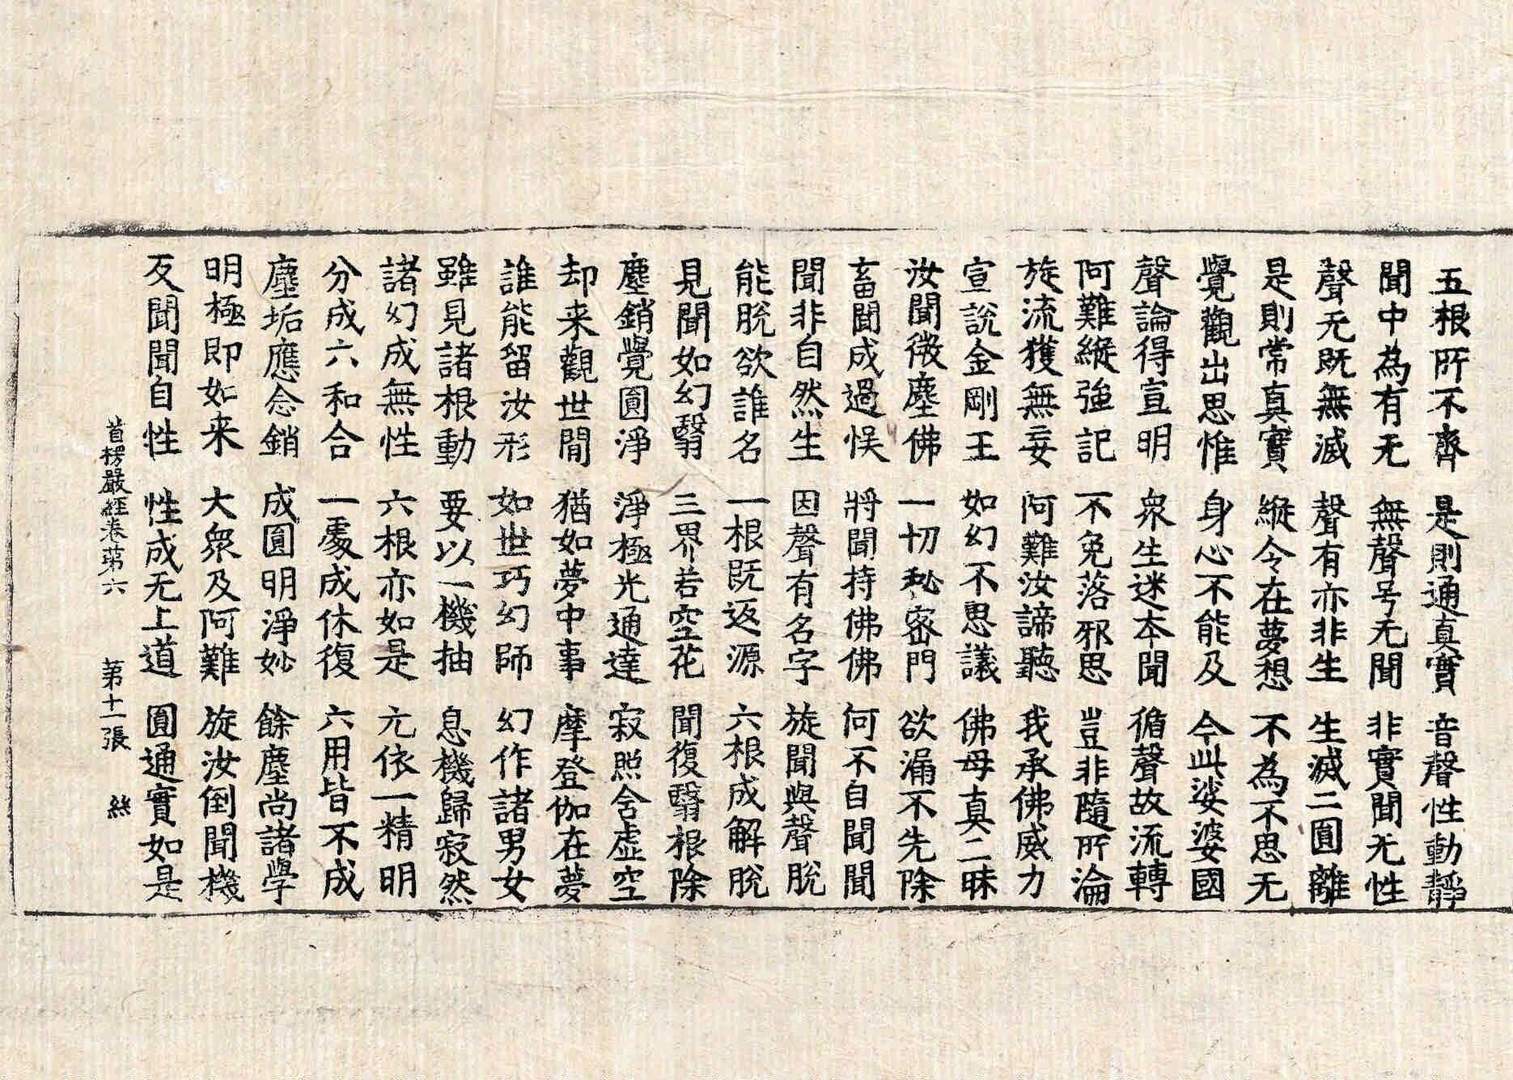 五根所不齊　是則通真實　音聲性動靜
聞中為有无　無聲号无聞　非實聞无性
聲无既無滅　聲有亦非生　生滅二圓離
是則常真實　縱令在夢想　不為不思无
覺觀出思惟　身心不能及　今此娑婆國
聲論得宣明　衆生迷本聞　循聲故流轉
阿難縱強記　不免落邪思　豈非隨所淪
旋流獲無妄　阿難汝諦聽　我承佛威力
宣說金剛王　如幻不思議　佛母真三昧
汝聞微塵佛　一切秘密門　欲漏不先除
畜聞成過悮　將聞持佛佛　何不自聞聞
聞非自然生　因聲有名字　旋聞與聲脫
能脫欲誰名　一根既返源　六根成解脫
見聞如幻翳　三界若空花　聞復翳根除
塵銷覺圓淨　淨極光通達　寂照含虛空
却来觀世間　猶如夢中事　摩登伽在夢
誰能留汝形　如世巧幻師　幻作諸男女
雖見諸根動　要以一機抽　息機歸寂然
諸幻成無性　六根亦如是　元依一精明
分成六和合　一處成休復　六用皆不成
塵垢應念銷　成圓明淨妙　餘塵尚諸學
明極即如来　大衆及阿難　旋汝倒聞機
反聞聞自性　性成无上道　圓通實如是
首楞嚴經卷第六　第十一張　絲